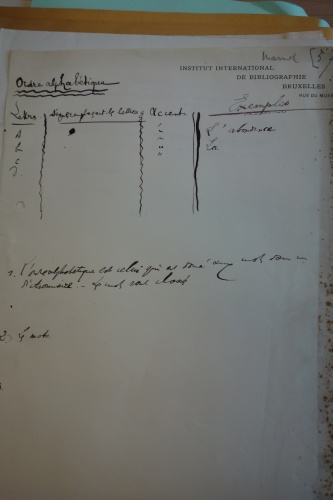 Manuel (5
INSTITUT INTERNATIONAL
DE BIBLIOGRAPHIE
BRUXELLES
RUE DU MUSÉ
Ordre alphabétique
Lettre Signe remplaçant la lettre Accent Exemples
A
B
C
D
L'abondance
La
1. L'ordre alphabétique est celui qui est donné aux mots dans un
dictionnaire. - Le mot sont classé
2) Le mots
3.